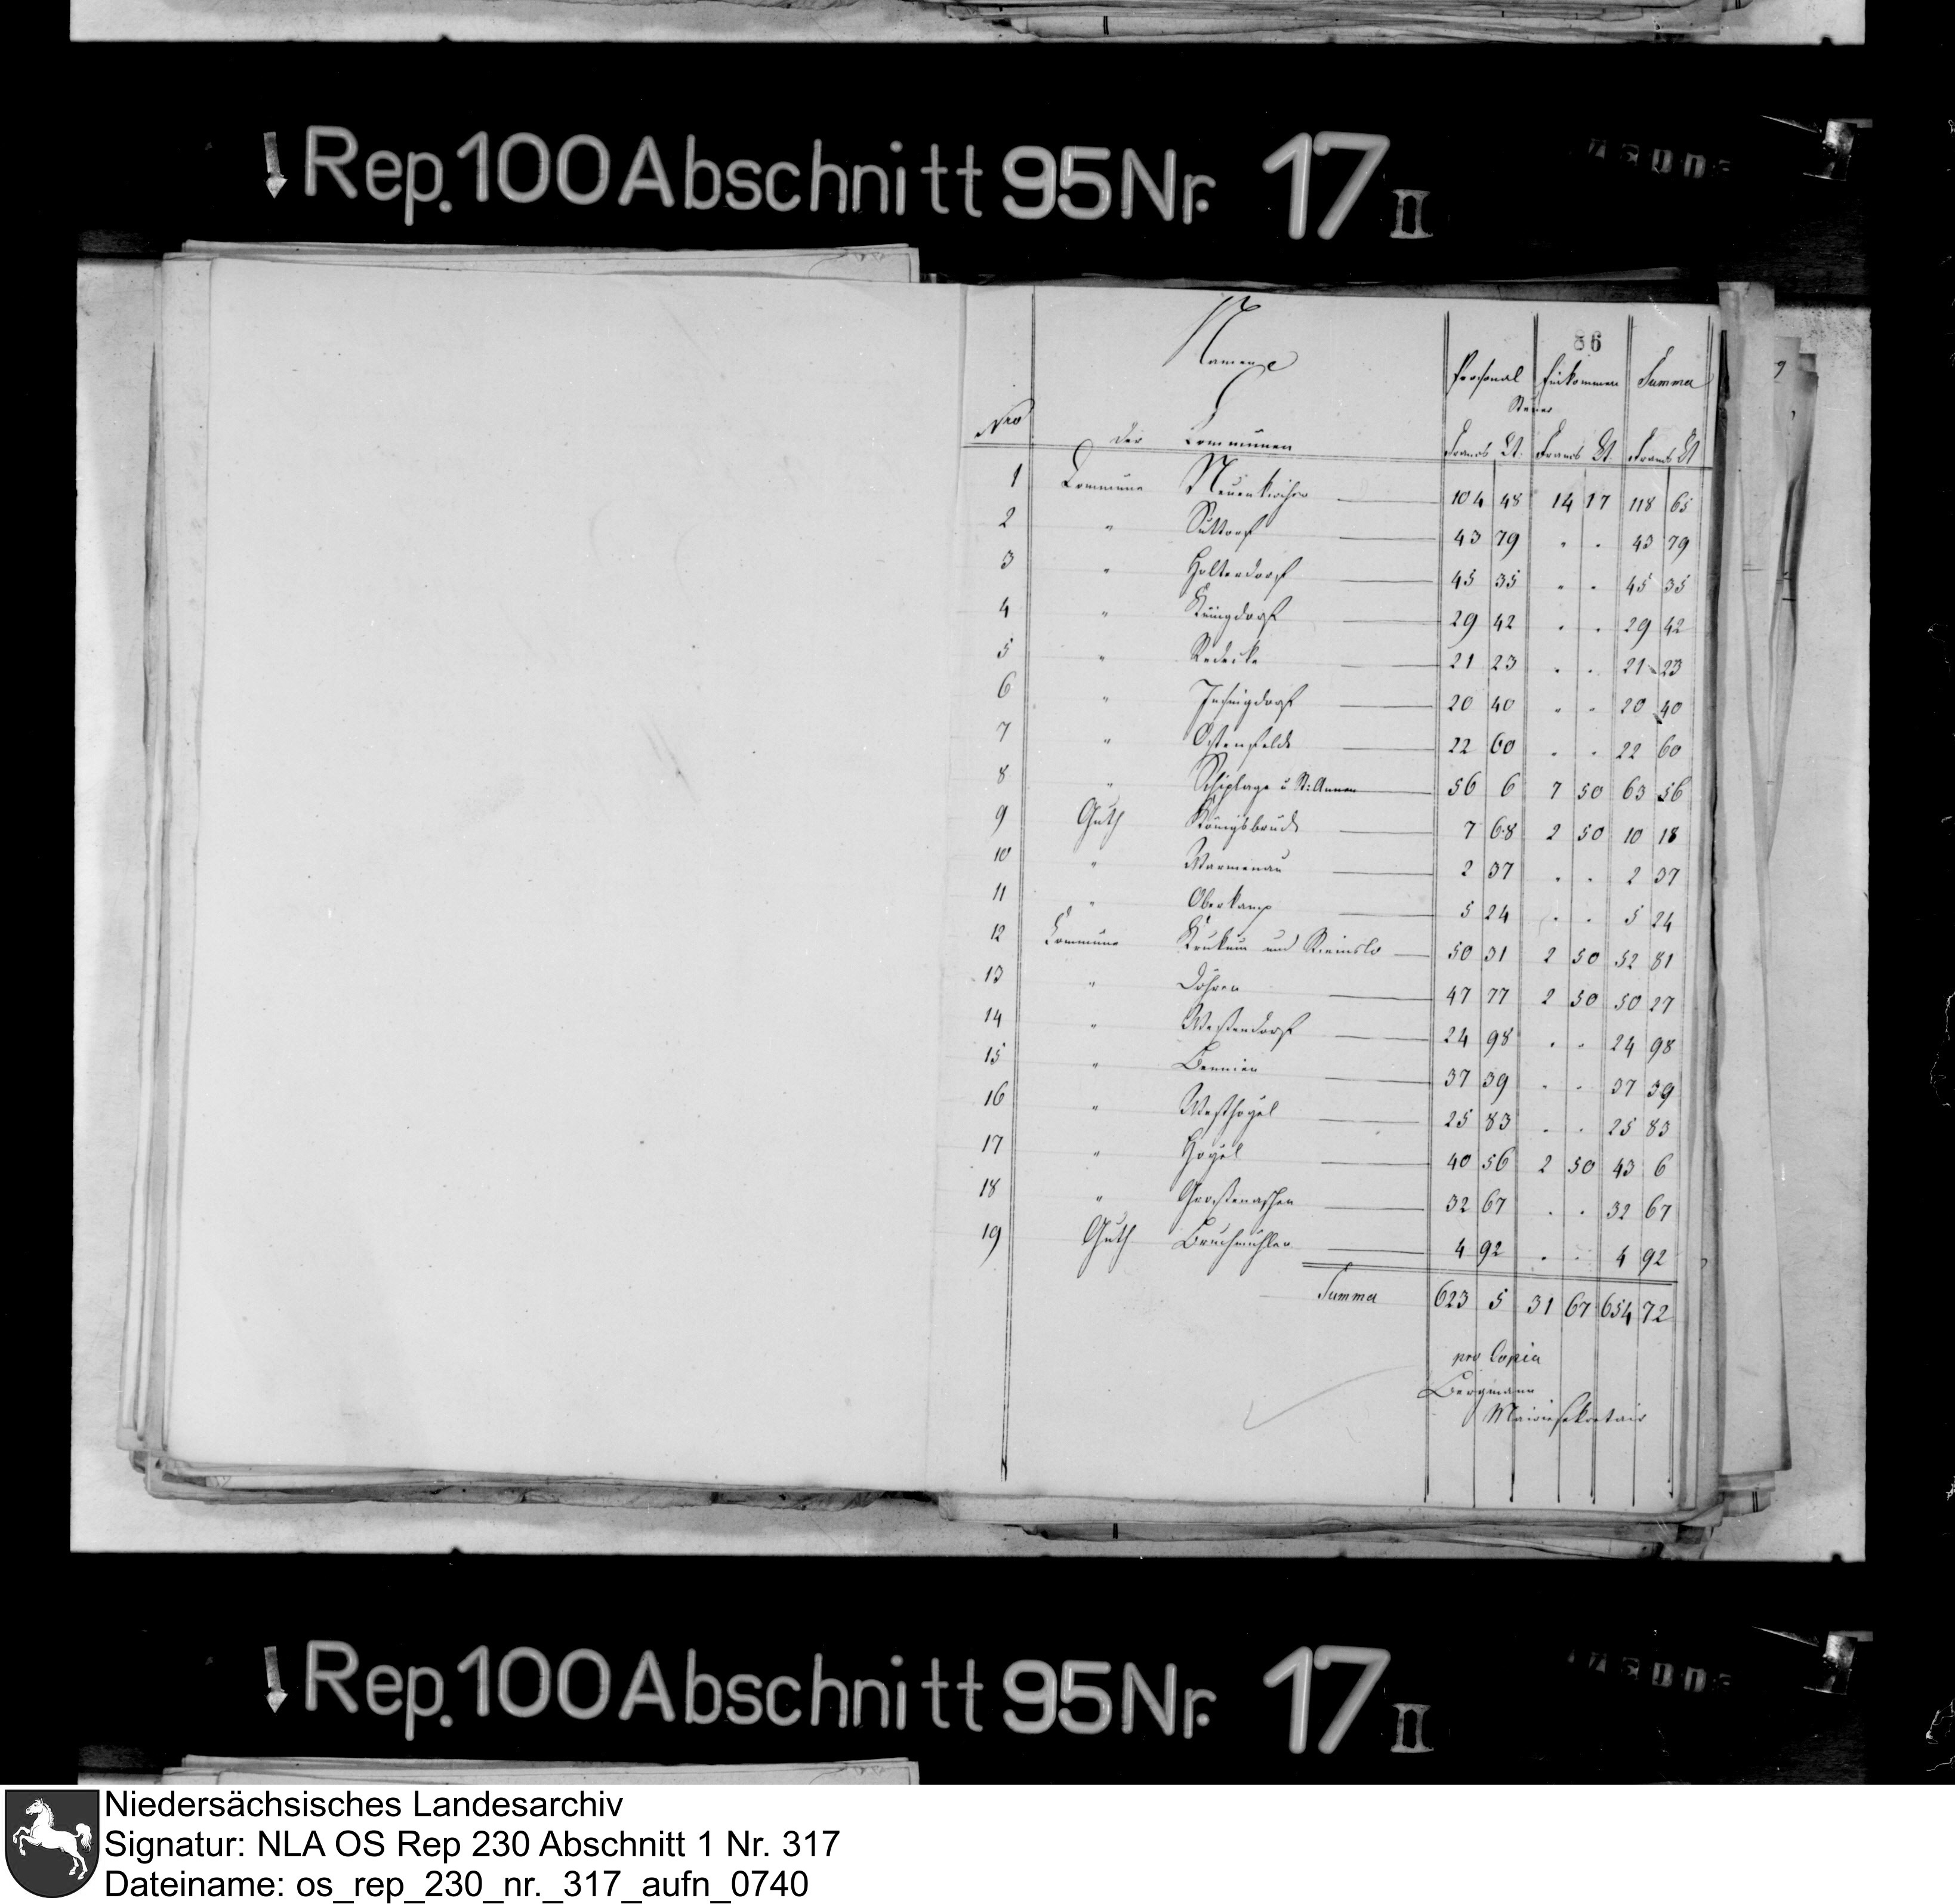 Rep. 100 Abschnitt 95 Nr. 17 II
86
Namen
Personal Einkommen Summa
Steuer
Nro der Communen Francs Ct. Francs Ct. Francs Ct
1 Commune Neuenkirchen 104 48 14 17 118 65
2 " Suttorf 43 79 " " 43 79
3 " Holterdorf 45 35 " " 45 35
4 " Küingdorf 29 42 " " 29 42
5 " Redecke 21 23 " " 21 23
6 " Insingdorf 20 40 " " 20 40
7 " Ostenfelde 22 60 " " 22 60
8 " Schiplage u St: Annen 56 6 7 50 63 56
9 Guth Königsbrück 7 68 2 50 10 18
10 " Warmenau 2 37 " " 2 37
11 " Oberkamp 5 24 " " 5 24
12 Commune Krukum und Riemslo 50 31 2 50 52 81
13 " Döhren 47 77 2 50 50 27
14 " Westendorf 24 98 " " 24 98
15 " Bennien 37 39 " " 37 39
16 " Westhoyel 25 83 " " 25 83
17 " Hoyel 40 56 2 50 43 6
18 " Großenaschen 32 67 " " 32 67
19 Guth Bruchmühlen 4 92 " " 4 92
Summa 623 5 31 67 654 72
pro Copia
Bergmann
Mairiesekretair
Rep. 100 Abschnitt 95 Nr. 17 II
Niedersächsisches Landesarchiv
Signatur: NLA OS Rep 230 Abschnitt 1 Nr. 317
Dateiname: os_rep_230_nr._317_aufn_0740